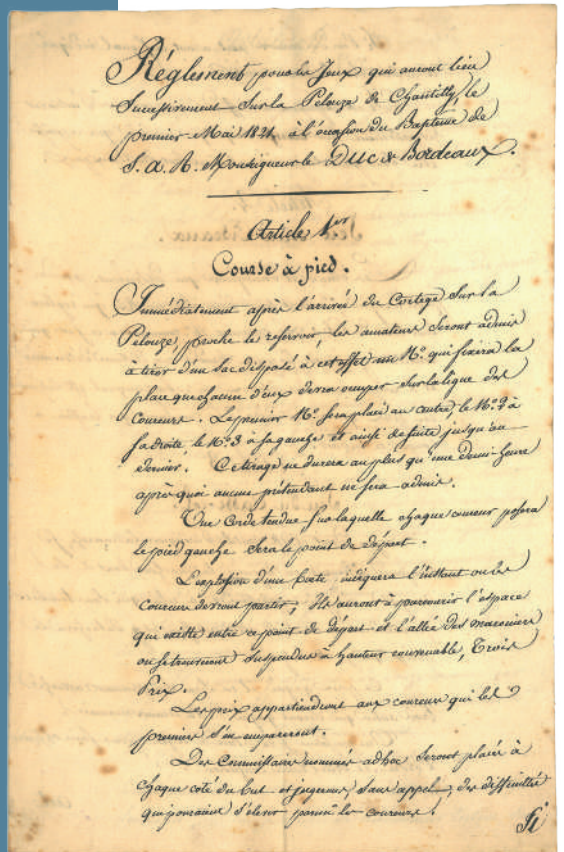 Réglement pour les Jeux qui auront lieu
Successivement Sur la Pelouze de Chantilly, le
premier Mai 1821, à l'occasion du Baptême de
S. A. R. Monseigneur le Duc de Bordeaux.
Article 1er
Course à pied.
Immédiatement après l'arrivée du Cortege Sur la
Pelouze, proche le reservoir, les amateurs Seront admis
à tirer d'un Sac disposé à cet effet un No. qui fixera la
place que chacun d'eux devra occuper Sur la ligne des
Coureurs. Le premier No. Sera placé au centre, le No. 2 à
sa droite, le No. 3 à sa gauche et ainsi de suite jusqu'au
dernier. Ce tirage ne durera au plus qu'une demi heure
après quoi aucun prétendant ne sera admis.
Une Corde tendue Sur laquelle chaque coureur posera
le pied gauche Sera le point de départ.
L'explosion d'une boete indiquera l'instant ou les
Coureurs devront partir; Ils auront à parcourir l'espace
qui existe entre ce point de départ et l'allée des maroniers
ou se trouveront Suspendus à hauteur convenable, Trois
Prix.
Les prix appartiendront aux coureurs qui les
premiers S'en empareront.
Des Commissaires nommés adhoc Seront placés à
chaque coté du but et jugeront, Sans appel, des difficultés
qui pouraient S'élever parmi les coureurs.
Si